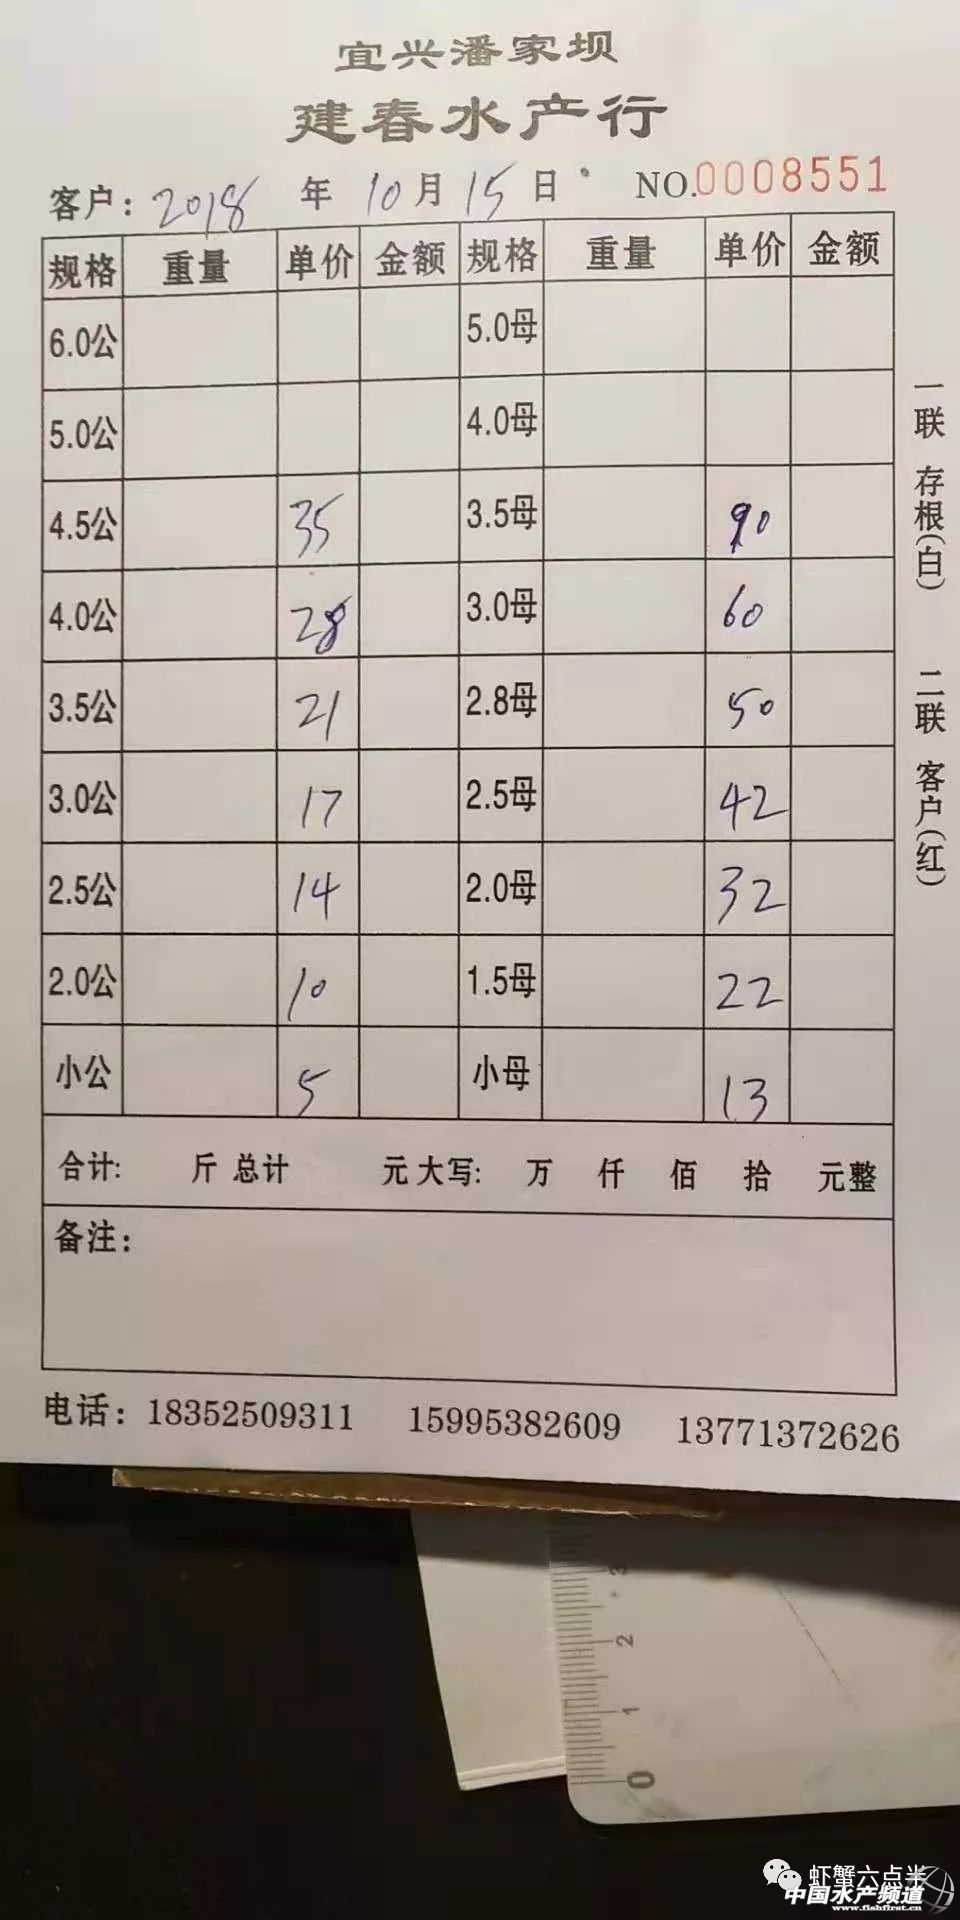 宜兴潘家坝
建春水产行
客户: 2018 年 10 月 15 日 NO.0008551
规格 重量 单价 金额 规格 重量 单价 金额
6.0公 5.0母
5.0公 4.0母
4.5公 35 3.5母 90
4.0公 28 3.0母 60
3.5公 21 2.8母 50
3.0公 17 2.5母 42
2.5公 14 2.0母 32
2.0公 10 1.5母 22
小公 5 小母 13
合计: 斤 总计 元 大写: 万 仟 佰 拾 元整
备注:
电话: 18352509311 15995382609 13771372626
一联 存根(白) 二联 客户(红)
3
2
1
0
虾蟹六点半
中国水产频道
www.fishfirst.cn